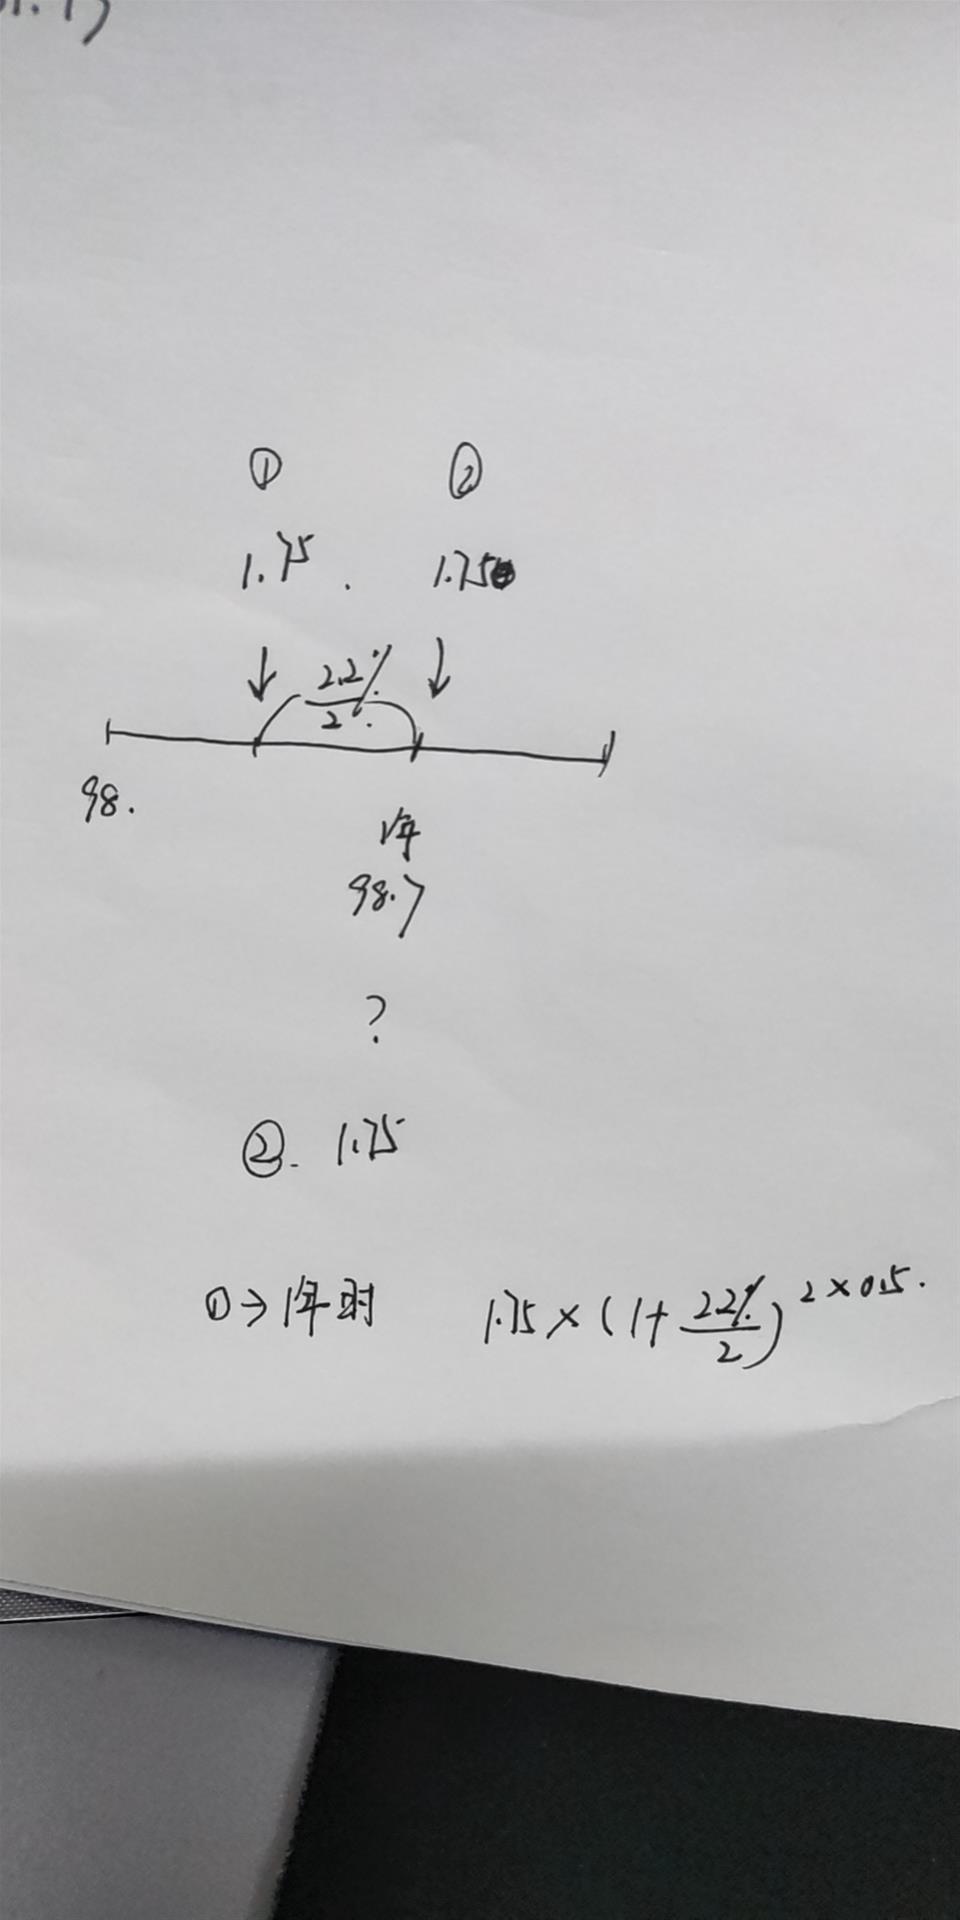 ① ②
1.75. 1.75
↓ ↓
2.2%
2
98.
1年
98.7
?
②. 1.75
①→1年时 1.75×(1+2.2%/2)^2×0.5.